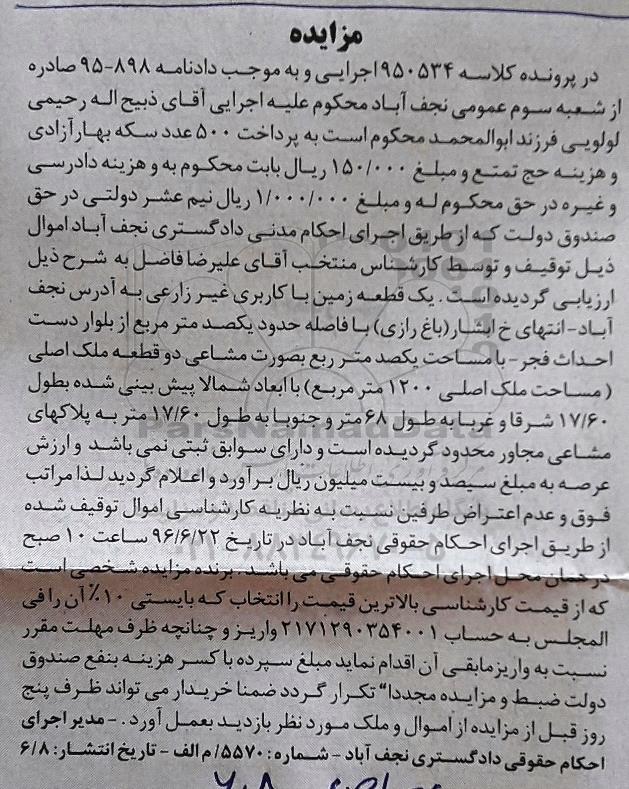 مزایده
در پرونده کلاسه ۹۵۰۵۳۴ اجرایی و به موجب دادنامه ۸۹۸-۹۵ صادره
از شعبه سوم عمومی نجف آباد محکوم علیه اجرایی آقای ذبیح اله رحیمی
لولویی فرزند ابوالمحمد محکوم است به پرداخت ۵۰۰ عدد سکه بهار آزادی
و هزینه حج تمتع و مبلغ ۱۵۰/۰۰۰ ریال بابت محکوم به و هزینه دادرسی
و غیره در حق محکوم له و مبلغ ۱/۰۰۰/۰۰۰ ریال نیم عشر دولتی در حق
صندوق دولت که از طریق اجرای احکام مدنی دادگستری نجف آباد اموال
ذیل توقیف و توسط کارشناس منتخب آقای علیرضا فاضل به شرح ذیل
ارزیابی گردیده است. یک قطعه زمین با کاربری غیر زارعی به آدرس نجف
آباد-انتهای خ ایثار(باغ رازی) با فاصله حدود یکصد متر مربع از بلوار دست
احداث فجر- با مساحت یکصد متر ربع بصورت مشاعی دو قطعه ملک اصلی
( مساحت ملک اصلی ۱۲۰۰ متر مربع) با ابعاد شمالا پیش بینی شده بطول
۱۷/۶۰ شرقا و غربا به طول ۶۸ متر و جنوبا به طول ۱۷/۶۰ متر به پلاکهای
مشاعی مجاور محدود گردیده است و دارای سوابق ثبتی نمی باشد و ارزش
عرصه به مبلغ سیصد و بیست میلیون ریال برآورد و اعلام گردید لذا مراتب
فوق و عدم اعتراض طرفین نسبت به نظریه کارشناسی اموال توقیف شده
از طریق اجرای احکام حقوقی نجف آباد در تاریخ ۹۶/۶/۲۲ ساعت ۱۰ صبح
در همان محل اجرای احکام حقوقی می باشد. برنده مزایده شخصی است
که از قیمت کارشناسی بالاترین قیمت را انتخاب که بایستی ۱۰٪ آن را فی
المجلس به حساب ۲۱۷۱۲۹۰۳۵۴۰۰۱ واریز و چنانچه ظرف مهلت مقرر
نسبت به واریز مابقی آن اقدام نماید مبلغ سپرده با کسر هزینه بنفع صندوق
دولت ضبط و مزایده مجددا" تکرار گردد ضمنا خریدار می تواند ظرف پنج
روز قبل از مزایده از اموال و ملک مورد نظر بازدید بعمل آورد. -مدیر اجرای
احکام حقوقی دادگستری نجف آباد - شماره: ۵۵۷۰/م الف - تاریخ انتشار: ۶/۸
ParsNamadData